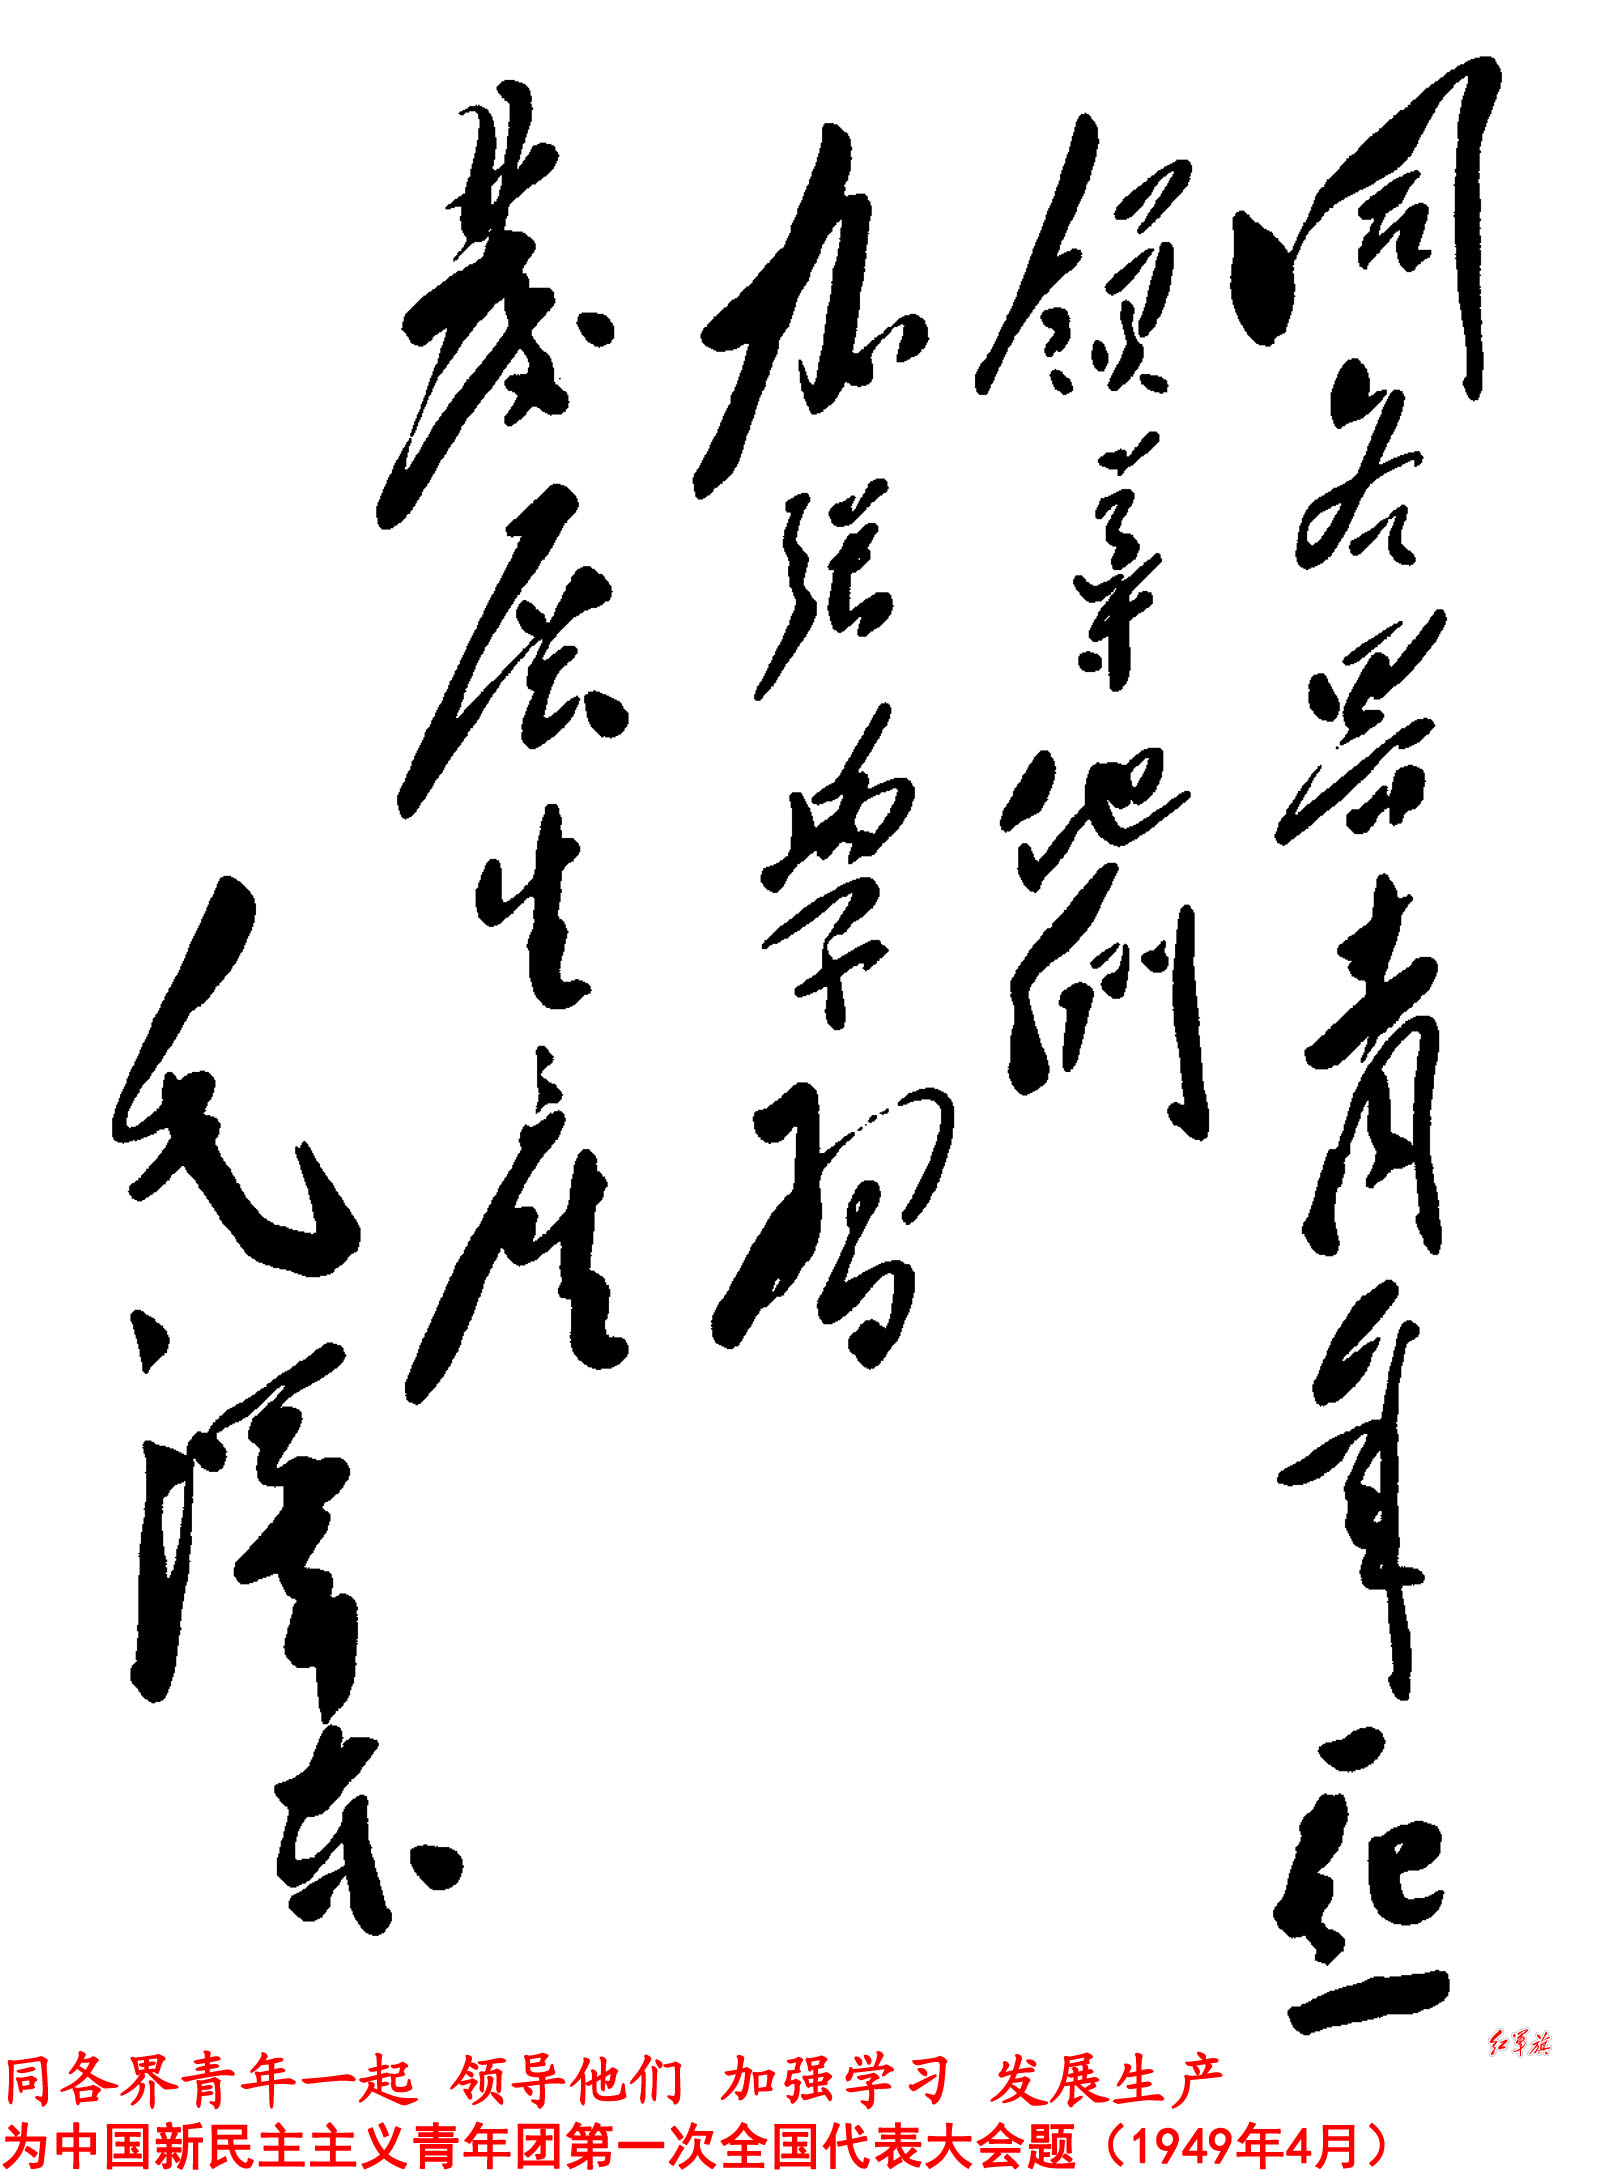 同各界青年一起
领导他们
加强学习
发展生产
毛泽东
红军旗
同各界青年一起 领导他们 加强学习 发展生产
为中国新民主主义青年团第一次全国代表大会题（1949年4月）